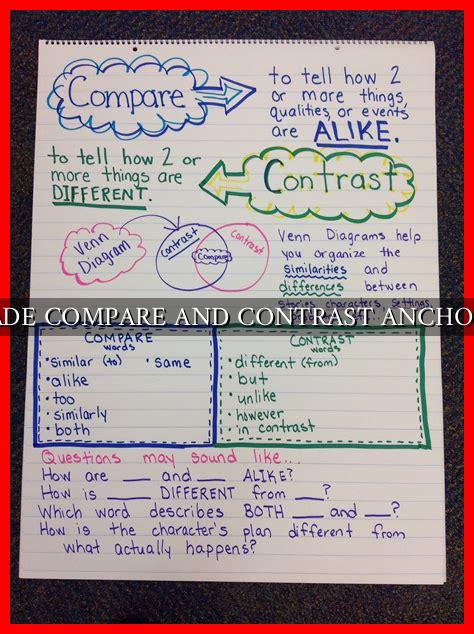 Compare
to tell how 2
or more things,
qualities, or events
are ALIKE.
to tell how 2 or
more things are
DIFFERENT.
Contrast
Venn
Diagram
Contrast
Compare
Contrast
Venn Diagrams help
you organize the
similarities and
differences between
stories, characters, settings,
ADE COMPARE AND CONTRAST ANCHO
COMPARE
words
• similar (to)
• same
• alike
• too
• similarly
• both
CONTRAST
words
• different (from)
• but
• unlike
• however
• in contrast
Questions may sound like...
How are ___ and ___ ALIKE?
How is ___ DIFFERENT from ___?
Which word describes BOTH ___ and ___?
How is the character's plan different from
what actually happens?